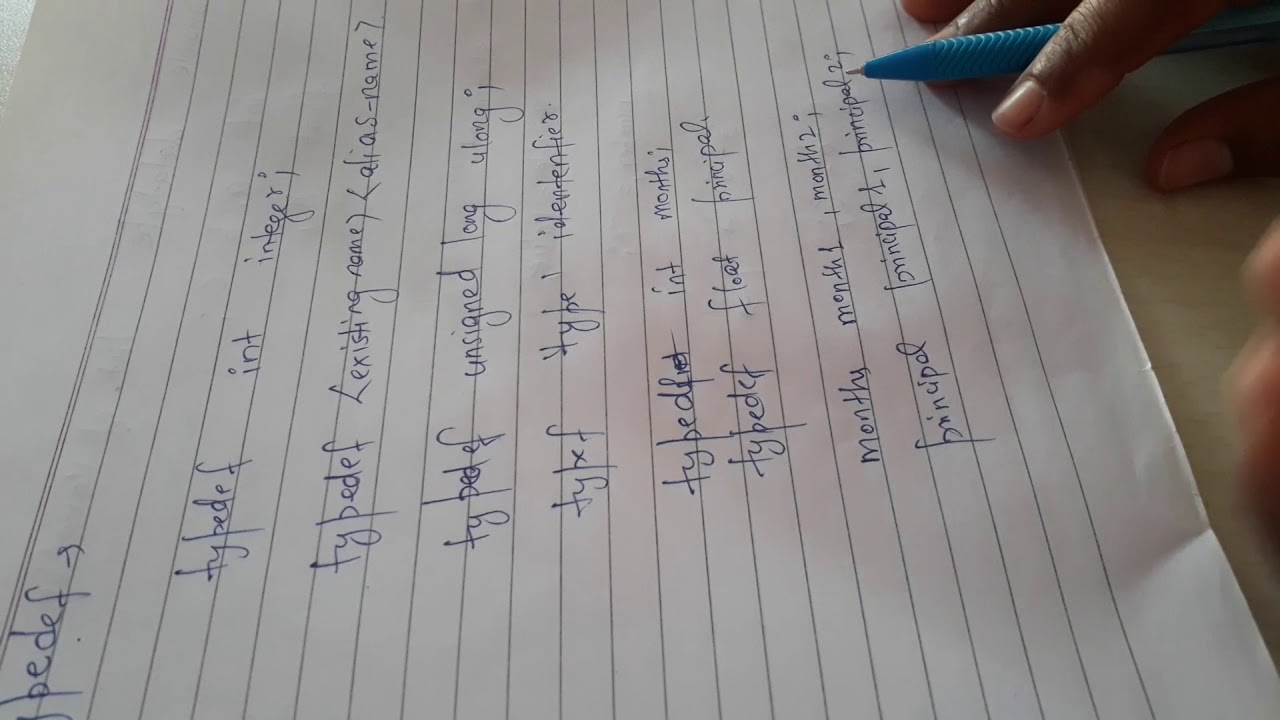 typedef →
typedef int integer;
typedef <existing-name> <alias-name>
typedef unsigned long ulong;
typef type identenfier.
typedef int months;
typedef float principal,
months month1, month2;
principal principal1, principal2;